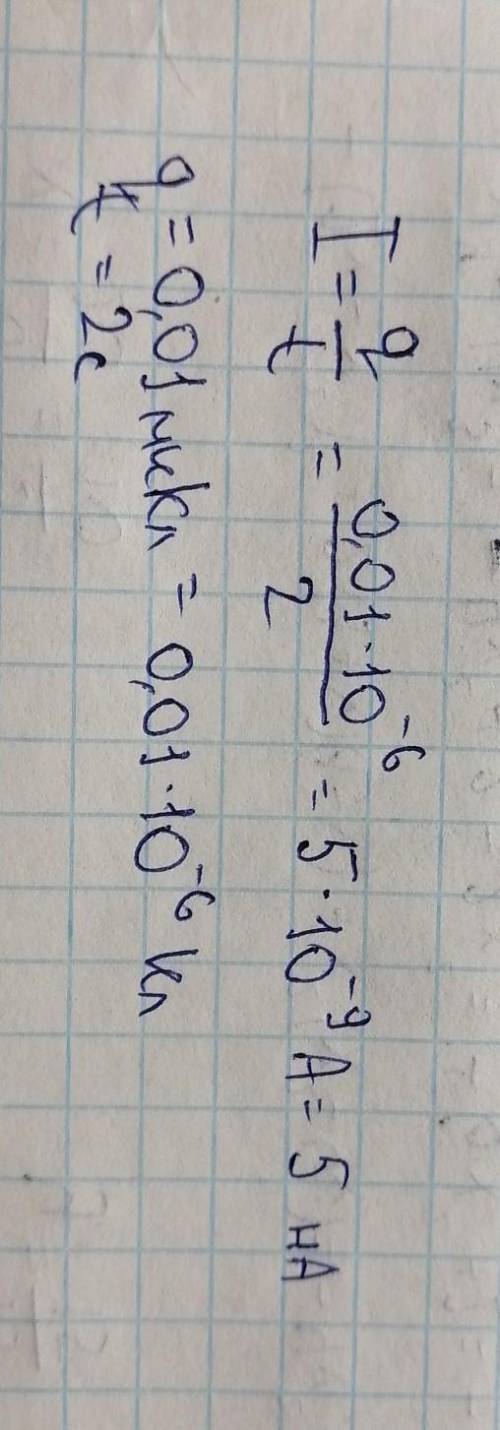 I = q/t = 0,01·10⁻⁶/2 = 5·10⁻⁹ А = 5 нА
q = 0,01 мкКл = 0,01·10⁻⁶ Кл
t = 2с